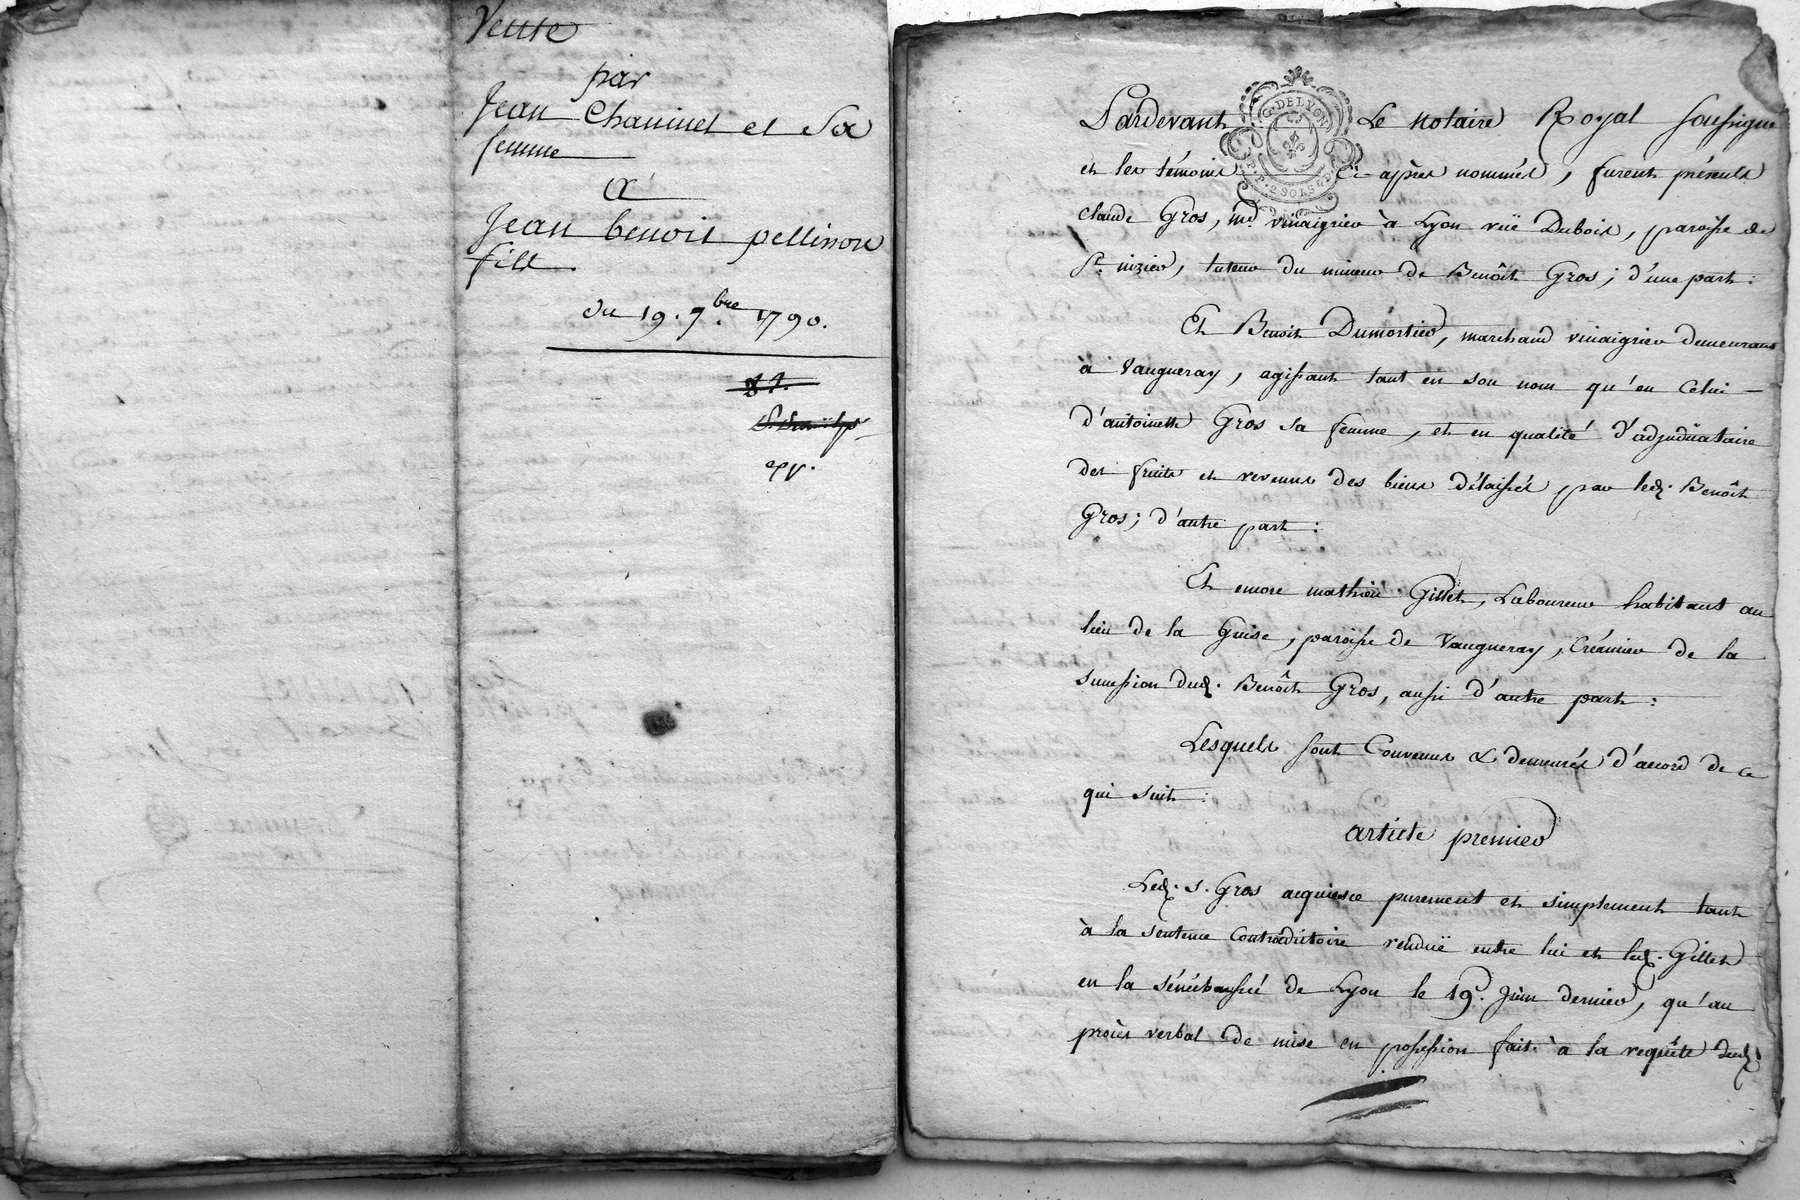 Vente
par
Jean Chaninel et Sa
femme
a
Jean benoit pellisson
fils
du 19. 7.bre 1790.
Pardevant Le notaire Royal soussigné
G. DE LYON
et les témoins Ci-après nommés, furent présents
P.P. 2 SOLS 4 D.
Claude Gros, md. vinaigrier à Lyon ruë Dubois, paroisse de
St. nizier, tuteur du mineur de Benôit Gros; d'une part:
Et Benoit Dumortier, marchand vinaigrier demeurant
à Vaugneray, agissant tant en son nom qu'en Celui
d'antoinette Gros sa femme, et en qualité d'adjudicataire
des fruits et revenus des biens délaissés par led. Benoît
Gros; d'autre part:
Et encore mathieu Gillet, Laboureur habitant au
lieu de la Guise, paroisse de Vaugneray, Créancier de la
succession dud. Benoît Gros, aussi d'autre part:
Lesquels sont Convenus & demeurés d'accord de ce
qui suit:
article premier
Led. s. Gros acquiesce purement et simplement tant
à la sentence contradictoire renduë entre lui et led. Gillet
en la sénéchaussée de Lyon le 19. Juin dernier, qu'au
procès verbal de mise en possession fait à la requête dud.